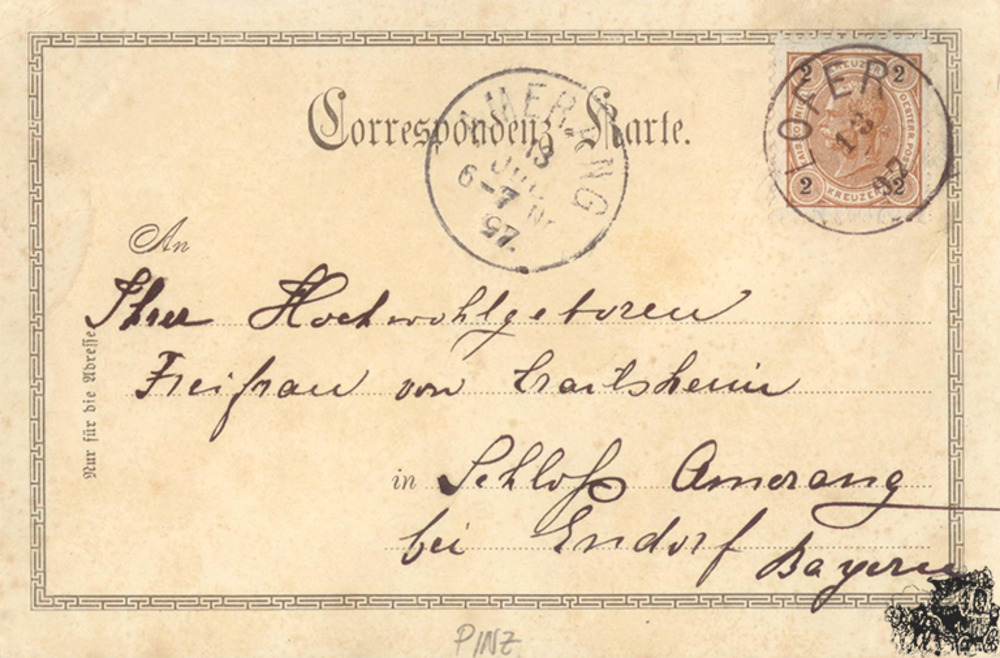 Correspondenz-Karte.
AMERANG
13
JUL
6-7 N
97.
LOFER
13
97
2 KREUZER 2
OESTERR. POST
2 KREUZER 2
An
Ihrer Hochwohlgeboren
Freifrau von Crailsheim
in Schloß Amerang
bei Endorf Bayern
Nur für die Adresse
PINZ